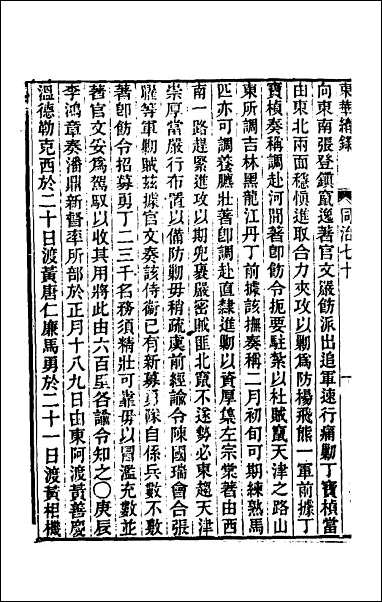 東華續錄 同治七十
向東南張登鎮竄逸著官文嚴飭派出追軍速行痛勦丁寶楨當
由東北兩面穩慎進取合力夾攻以勦爲防楊飛熊一軍前據丁
寶楨奏稱調赴河間著卽飭令扼要駐紮以杜賊竄天津之路山
東所調吉林黑龍江丹丁前據該撫奏稱二月初旬可期練熟馬
匹亦可調養臕壯著卽調赴直隸進勦以資厚集左宗棠著由西
南一路趕緊進攻以期兜裹嚴密賊匪北竄不遂勢必東趨天津
崇厚當嚴行布置以備防勦毋稍疏虞前經諭令陳國瑞會合張
曜等軍勦賊茲據官文奏該侍衞已有新募勇隊自係兵數不敷
著卽飭令招募勇丁二三千名務須精壯可靠毋以濫充數並
著官文妥爲駕馭以收其用將此由六百里各諭令知之〇庚辰
李鴻章奏潘鼎新督率所部於正月十八九日由東阿渡黃善慶
溫德勒克西於二十日渡黃唐仁廉馬勇於二十一日渡黃相機